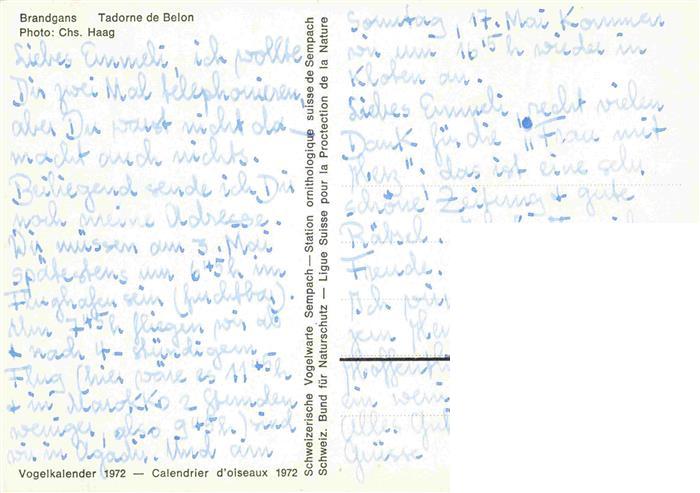 Brandgans Tadorne de Belon
Photo: Chs. Haag
Liebes Emmeli, ich wollte
Dir zwei Mal telephonieren,
aber Du warst nicht da,
macht auch nichts.
Beiliegend sende ich Dir
noch meine Adresse.
Wir müssen am 3. Mai
spätestens um 6 45 h im
Flughafen sein (furchtbar).
Um 7 45 h fliegen wir ab
+ nach 4 stündigem
Flug (hier wäre es 11 45 h
+ in Marokko 2 Stunden
weniger, also 9 45 h) sind
wir in Agadir. Und am
Vogelkalender 1972 — Calendrier d'oiseaux 1972
Schweizerische Vogelwarte Sempach — Station ornithologique suisse de Sempach
Schweiz. Bund für Naturschutz — Ligue Suisse pour la Proctection de la Nature
Sonntag, 17. Mai kommen
wir um 16 15 h wieder in
Kloten an.
Liebes Emmeli, recht vielen
Dank für die "Frau mit
Herz" das ist eine sehr
schöne Zeitung + gute
Rätsel
Freude.
Ich
Hoffentl
ein weni
Alles Gu
Grüsse